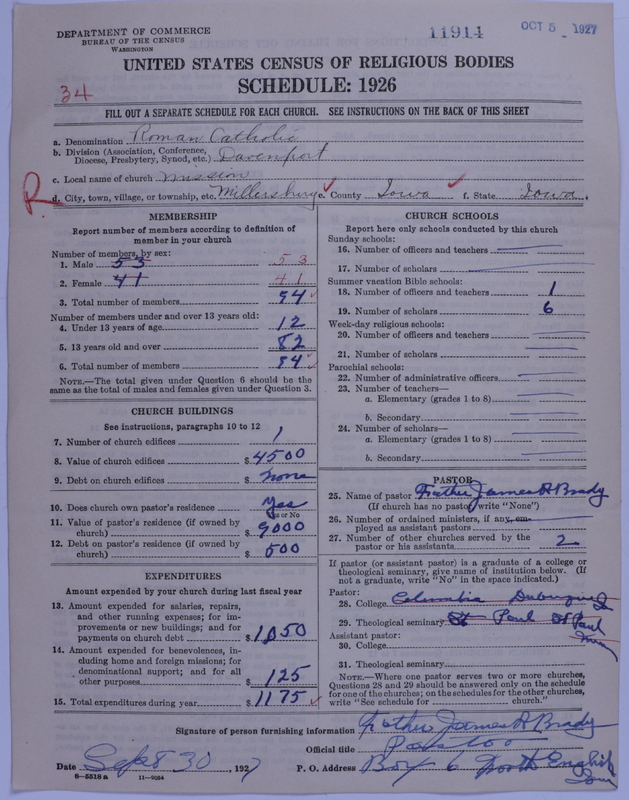 DEPARTMENT OF COMMERCE
BUREAU OF THE CENSUS
WASHINGTON
11914
OCT 5 - 1927
UNITED STATES CENSUS OF RELIGIOUS BODIES
SCHEDULE: 1926
34
FILL OUT A SEPARATE SCHEDULE FOR EACH CHURCH. SEE INSTRUCTIONS ON THE BACK OF THIS SHEET
a. Denomination Roman Catholic
b. Division (Association, Conference, Diocese, Presbytery, Synod, etc.) Davenport
c. Local name of church Mission
R
d. City, town, village, or township, etc. Millersburg e. County Iowa f. State Iowa
MEMBERSHIP
Report number of members according to definition of member in your church
Number of members, by sex:
1. Male 53 53
2. Female 41 41
3. Total number of members 94
Number of members under and over 13 years old:
4. Under 13 years of age 12
5. 13 years old and over 82
6. Total number of members 94
NOTE.—The total given under Question 6 should be the same as the total of males and females given under Question 3.
CHURCH BUILDINGS
See instructions, paragraphs 10 to 12
7. Number of church edifices 1
8. Value of church edifices $ 4500
9. Debt on church edifices $ None
10. Does church own pastor's residence Yes
Yes or No
11. Value of pastor's residence (if owned by church) $ 9000
12. Debt on pastor's residence (if owned by church) $ 500
EXPENDITURES
Amount expended by your church during last fiscal year
13. Amount expended for salaries, repairs, and other running expenses; for improvements or new buildings; and for payments on church debt $ 1050
14. Amount expended for benevolences, including home and foreign missions; for denominational support; and for all other purposes $ 125
15. Total expenditures during year $ 1175
CHURCH SCHOOLS
Report here only schools conducted by this church
Sunday schools:
16. Number of officers and teachers
17. Number of scholars
Summer vacation Bible schools:
18. Number of officers and teachers 1
19. Number of scholars 6
Week-day religious schools:
20. Number of officers and teachers
21. Number of scholars
Parochial schools:
22. Number of administrative officers
23. Number of teachers—
a. Elementary (grades 1 to 8)
b. Secondary
24. Number of scholars—
a. Elementary (grades 1 to 8)
b. Secondary
PASTOR
25. Name of pastor Father James A Brady
(If church has no pastor, write "None")
26. Number of ordained ministers, if any, employed as assistant pastors
27. Number of other churches served by the pastor or his assistants 2
If pastor (or assistant pastor) is a graduate of a college or theological seminary, give name of institution below. (If not a graduate, write "No" in the space indicated.)
Pastor:
28. College Columbia Dubuque Ia
29. Theological seminary St Paul St Paul Minn
Assistant pastor:
30. College
31. Theological seminary
NOTE.—Where one pastor serves two or more churches, Questions 28 and 29 should be answered only on the schedule for one of the churches; on the schedules for the other churches, write "See schedule for church."
Signature of person furnishing information Father James A Brady
Official title Pastor
Date Sept 30 1927 P. O. Address Box 6 North English Iowa
6-5518 a 11-9064